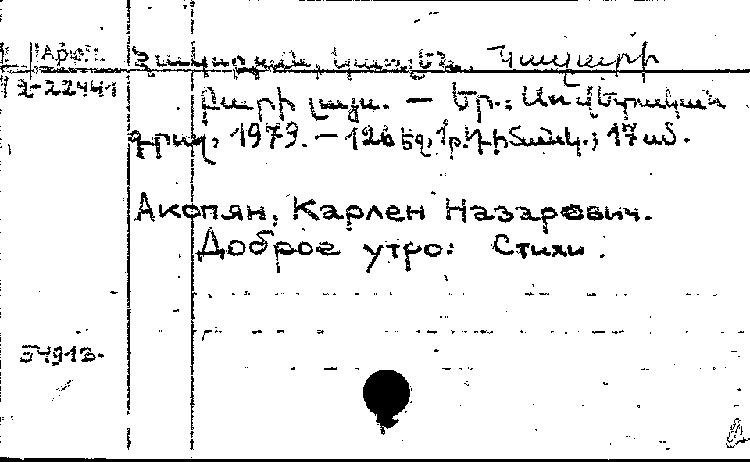 Հակոբյան, Կառլեն Նազարի
2-22441
Բարի լույս. — Եր.: Սովետական
գրող, 1979. — 126 էջ, 1 թ. դիմանկ.; 17 սմ.
Акопян, Карлен Назарович.
Доброе утро: Стихи.
54913.